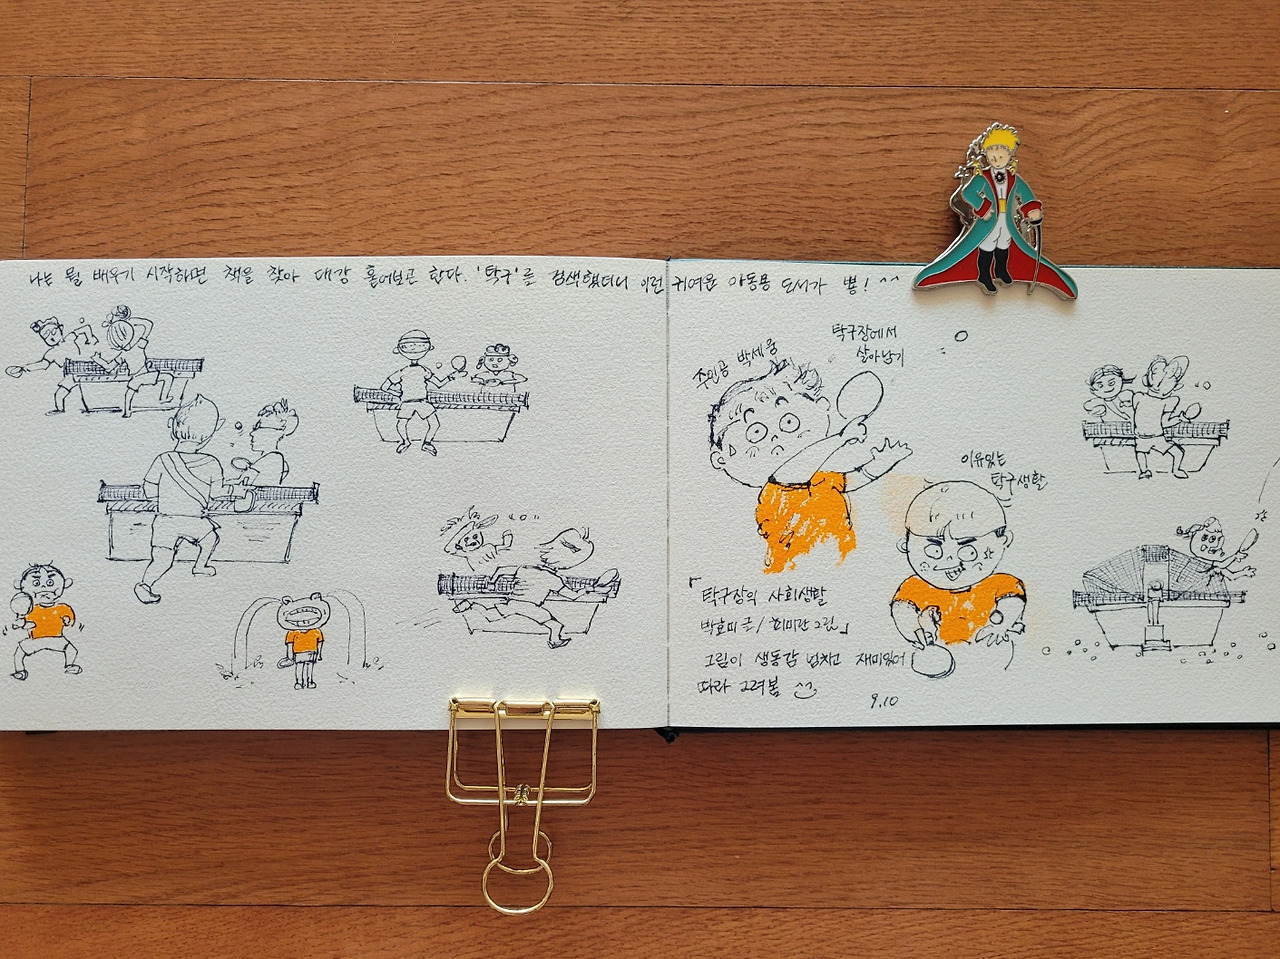 나는 뭘 배우기 시작하면 책을 찾아 대강 훑어보곤 한다. '탁구'를 검색했더니 이런 귀여운 아동용 도서가 뿅! ^^
주인공 박세웅
탁구장에서
살아남기
이유있는
탁구생활
「탁구장의 사회생활
박효미 글 / 희미란 그림」
그림이 생동감 넘치고 재미있어
따라 그려봄
9.10